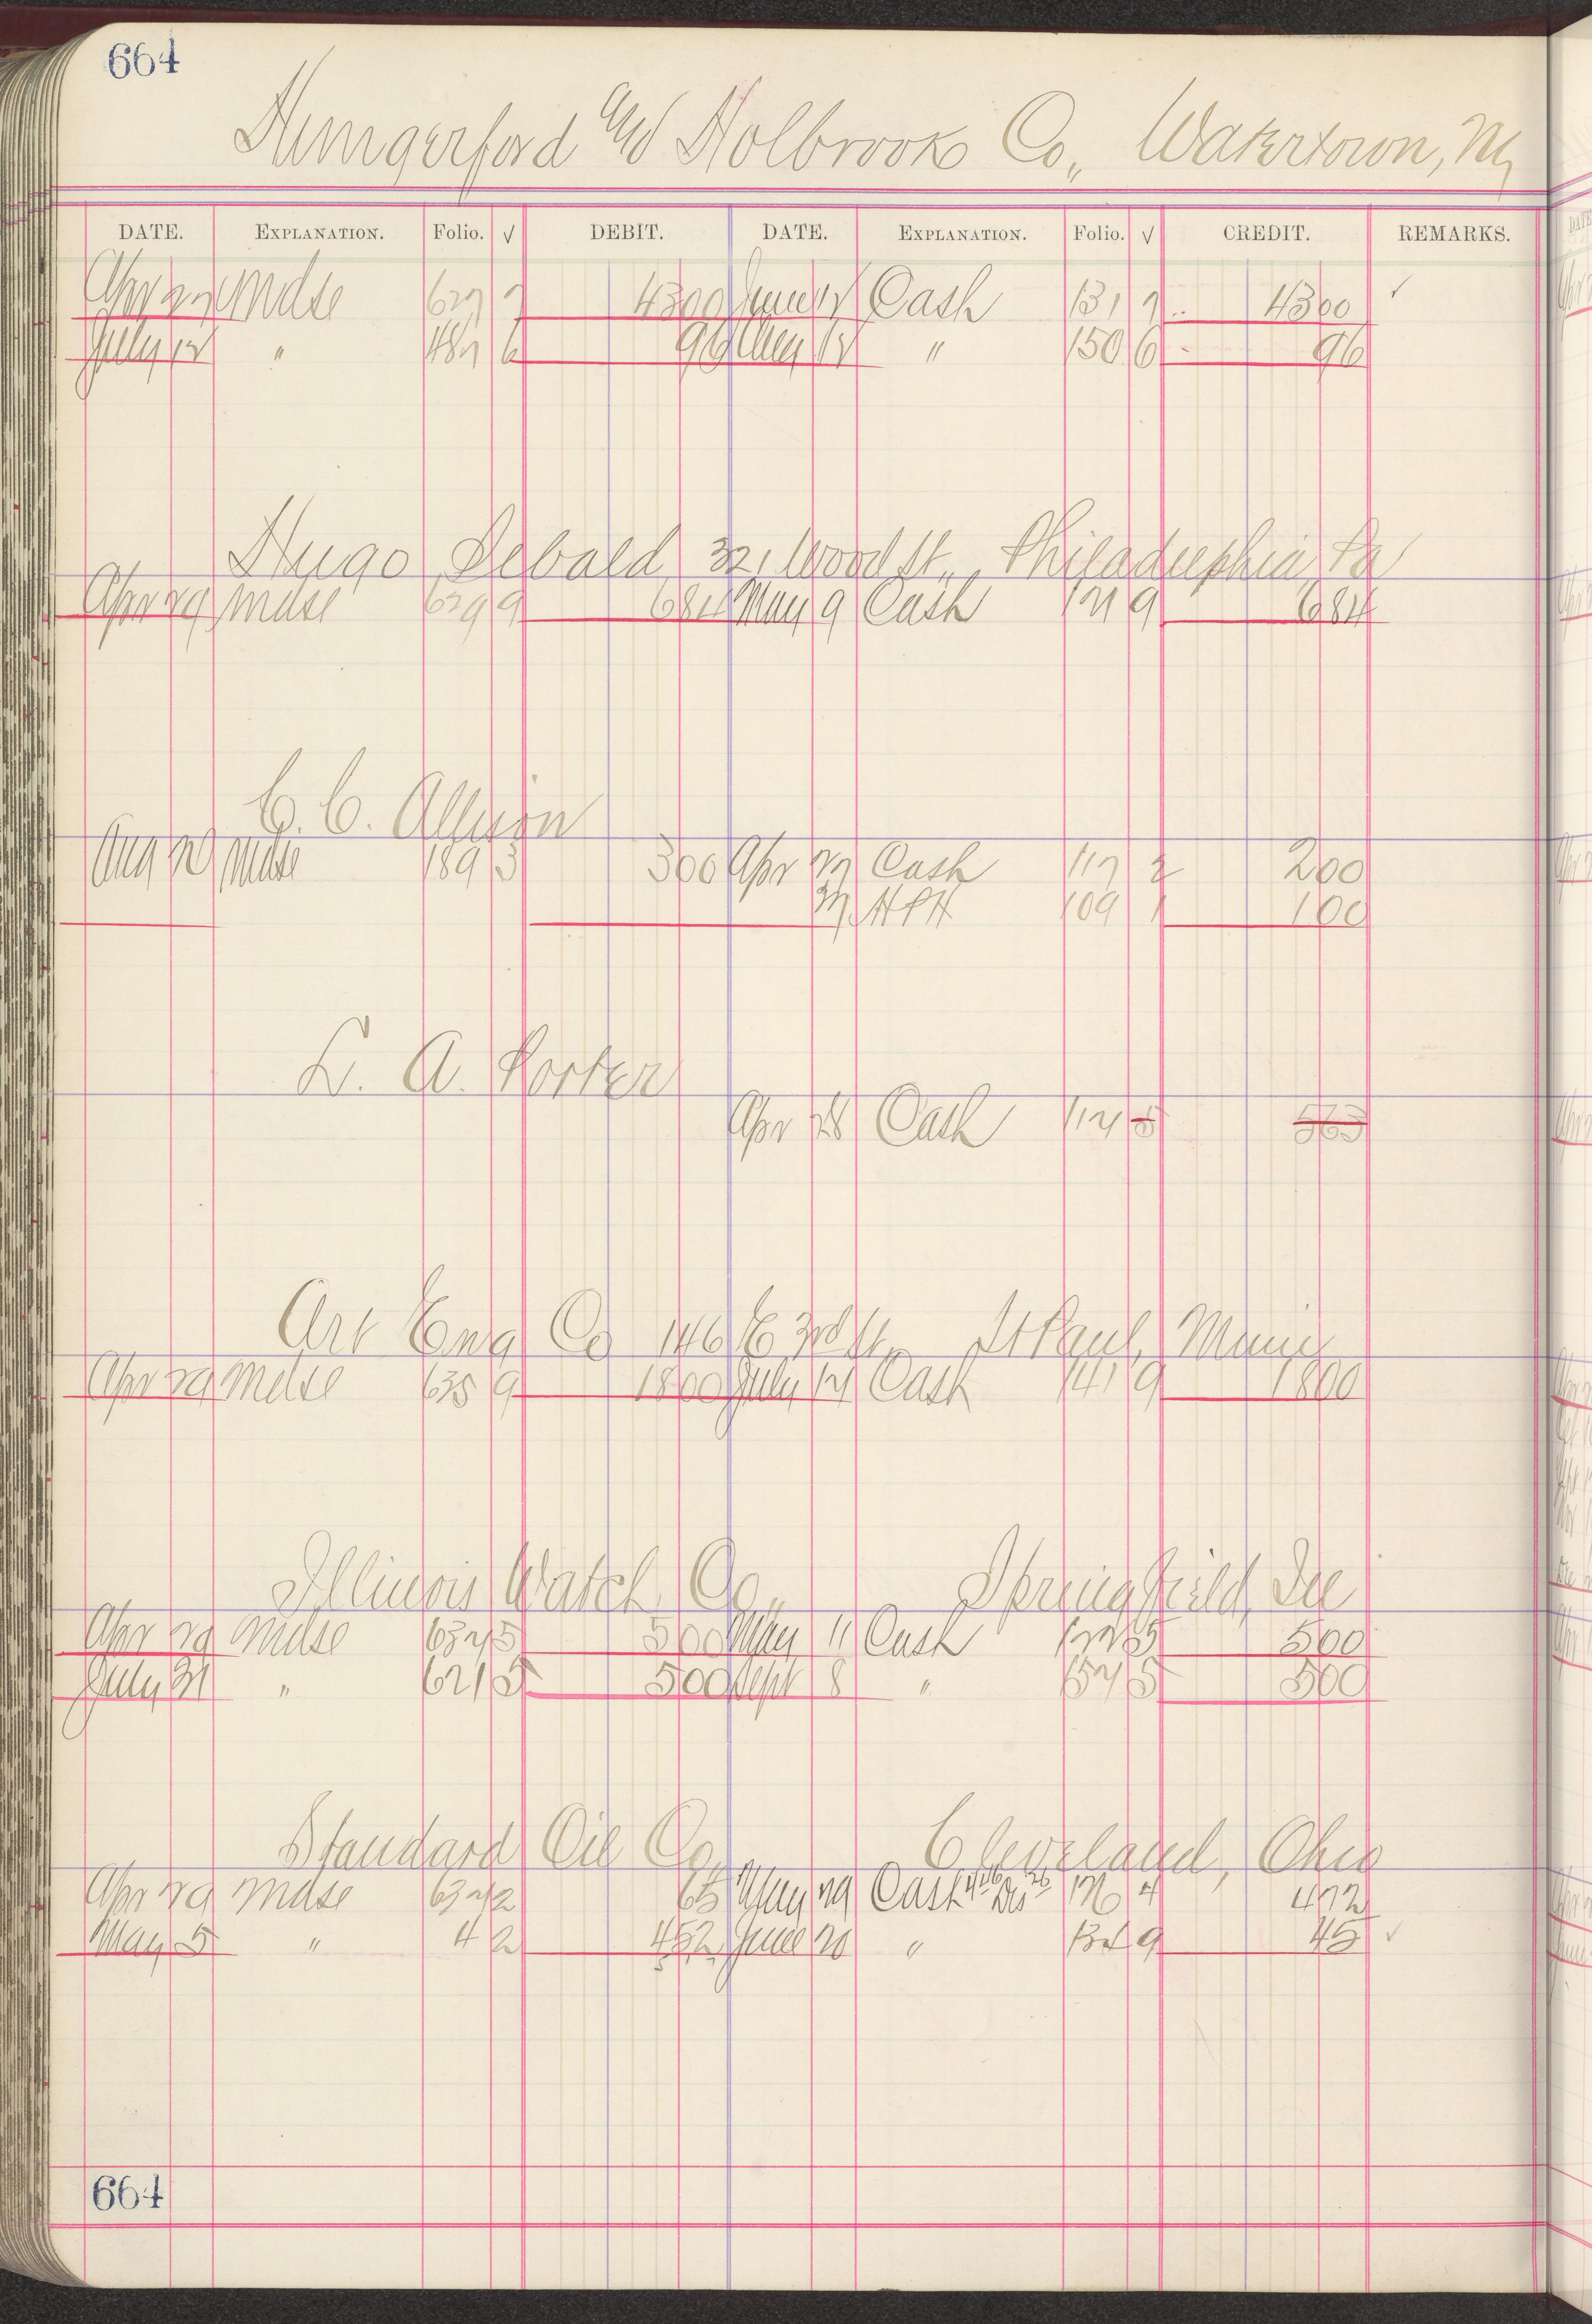 664
Hungerford and Holbrook Co., Watertown, Ny
DATE. EXPLANATION. Folio. √ DEBIT. DATE. EXPLANATION. Folio. √ CREDIT. REMARKS.
Apr 27 Mdse 627 7 4300 June Cash 131 7 4300 ✓
July 12 " 487 6 96 Aug 12 " 150 6 96
Hugo Sebald, 321 Wood St., Philadelphia Pa
Apr 29 Mdse 629 9 684 May 9 Cash 121 9 684
C. C. Allison
Aug 20 Mdse 189 3 300 Apr 27 Cash 117 2 200
27 HPH 109 1 100
L. A. Porter
Apr 28 Cash 117 5 563
Art Eng Co 146 E 3rd St., St Paul, Minn
Apr 29 Mdse 635 9 1800 July 14 Cash 141 9 1800
Illinois Watch Co., Springfield, Ill
Apr 29 Mdse 637 5 500 May 11 Cash 122 5 500
July 31 " 621 5 500 Sept 8 " 157 5 500
Standard Oil Co., Cleveland, Ohio
Apr 29 Mdse 637 2 65 May 29 Cash 126 4 472
May 5 " 4 2 452 June 20 " 134 9 45 ✓
664